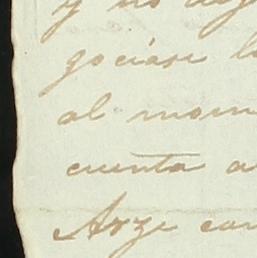 y no dej
gociase l
al mom
cuenta a
Arze con